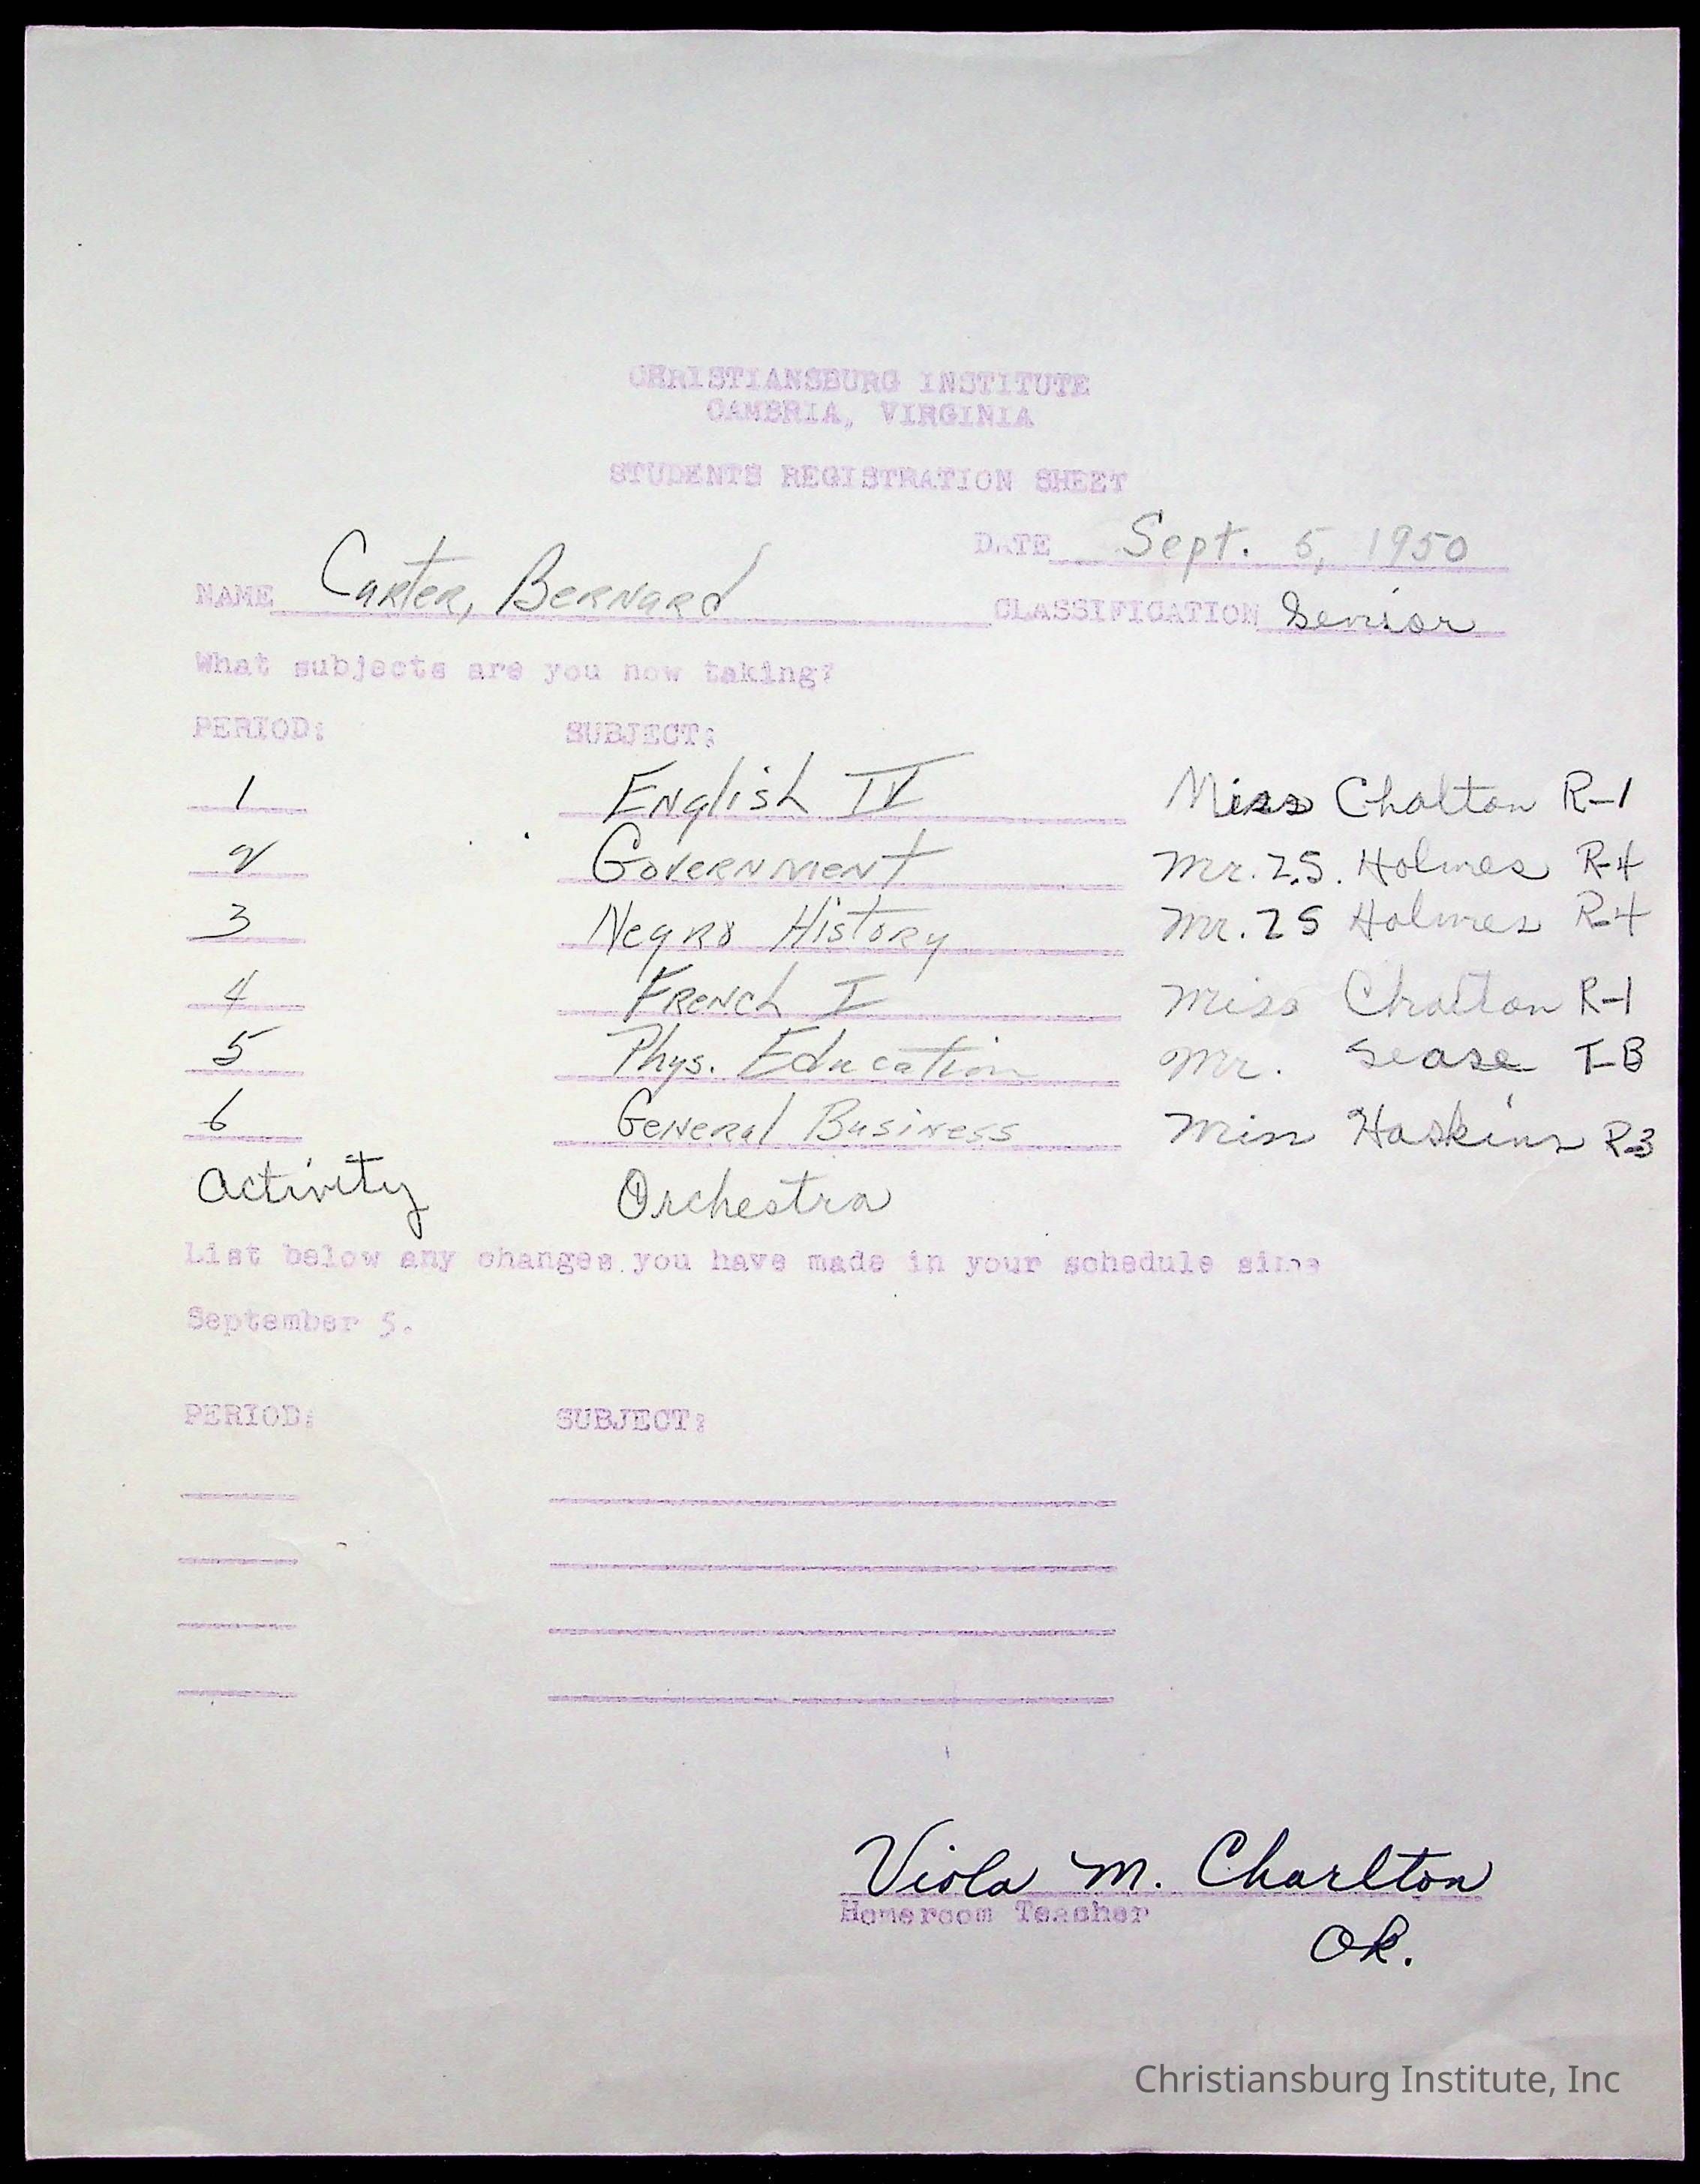 CHRISTIANSBURG INSTITUTE
CAMBRIA, VIRGINIA
STUDENTS REGISTRATION SHEET
DATE Sept. 5, 1950
NAME Carter, Bernard CLASSIFICATION Senior
What subjects are you now taking?
PERIOD: SUBJECT:
1 English IV Miss Chalton R-1
2 Government Mr. Z.S. Holmes R-4
3 Negro History Mr. Z S Holmes R-4
4 French I Miss Chralton R-1
5 Phys. Education Mr. Sease T-B
6 General Business Miss Haskins R-3
Activity Orchestra
List below any changes you have made in your schedule since
September 5.
PERIOD: SUBJECT:
Viola M. Charlton
Homeroom Teacher
Ok.
Christiansburg Institute, Inc